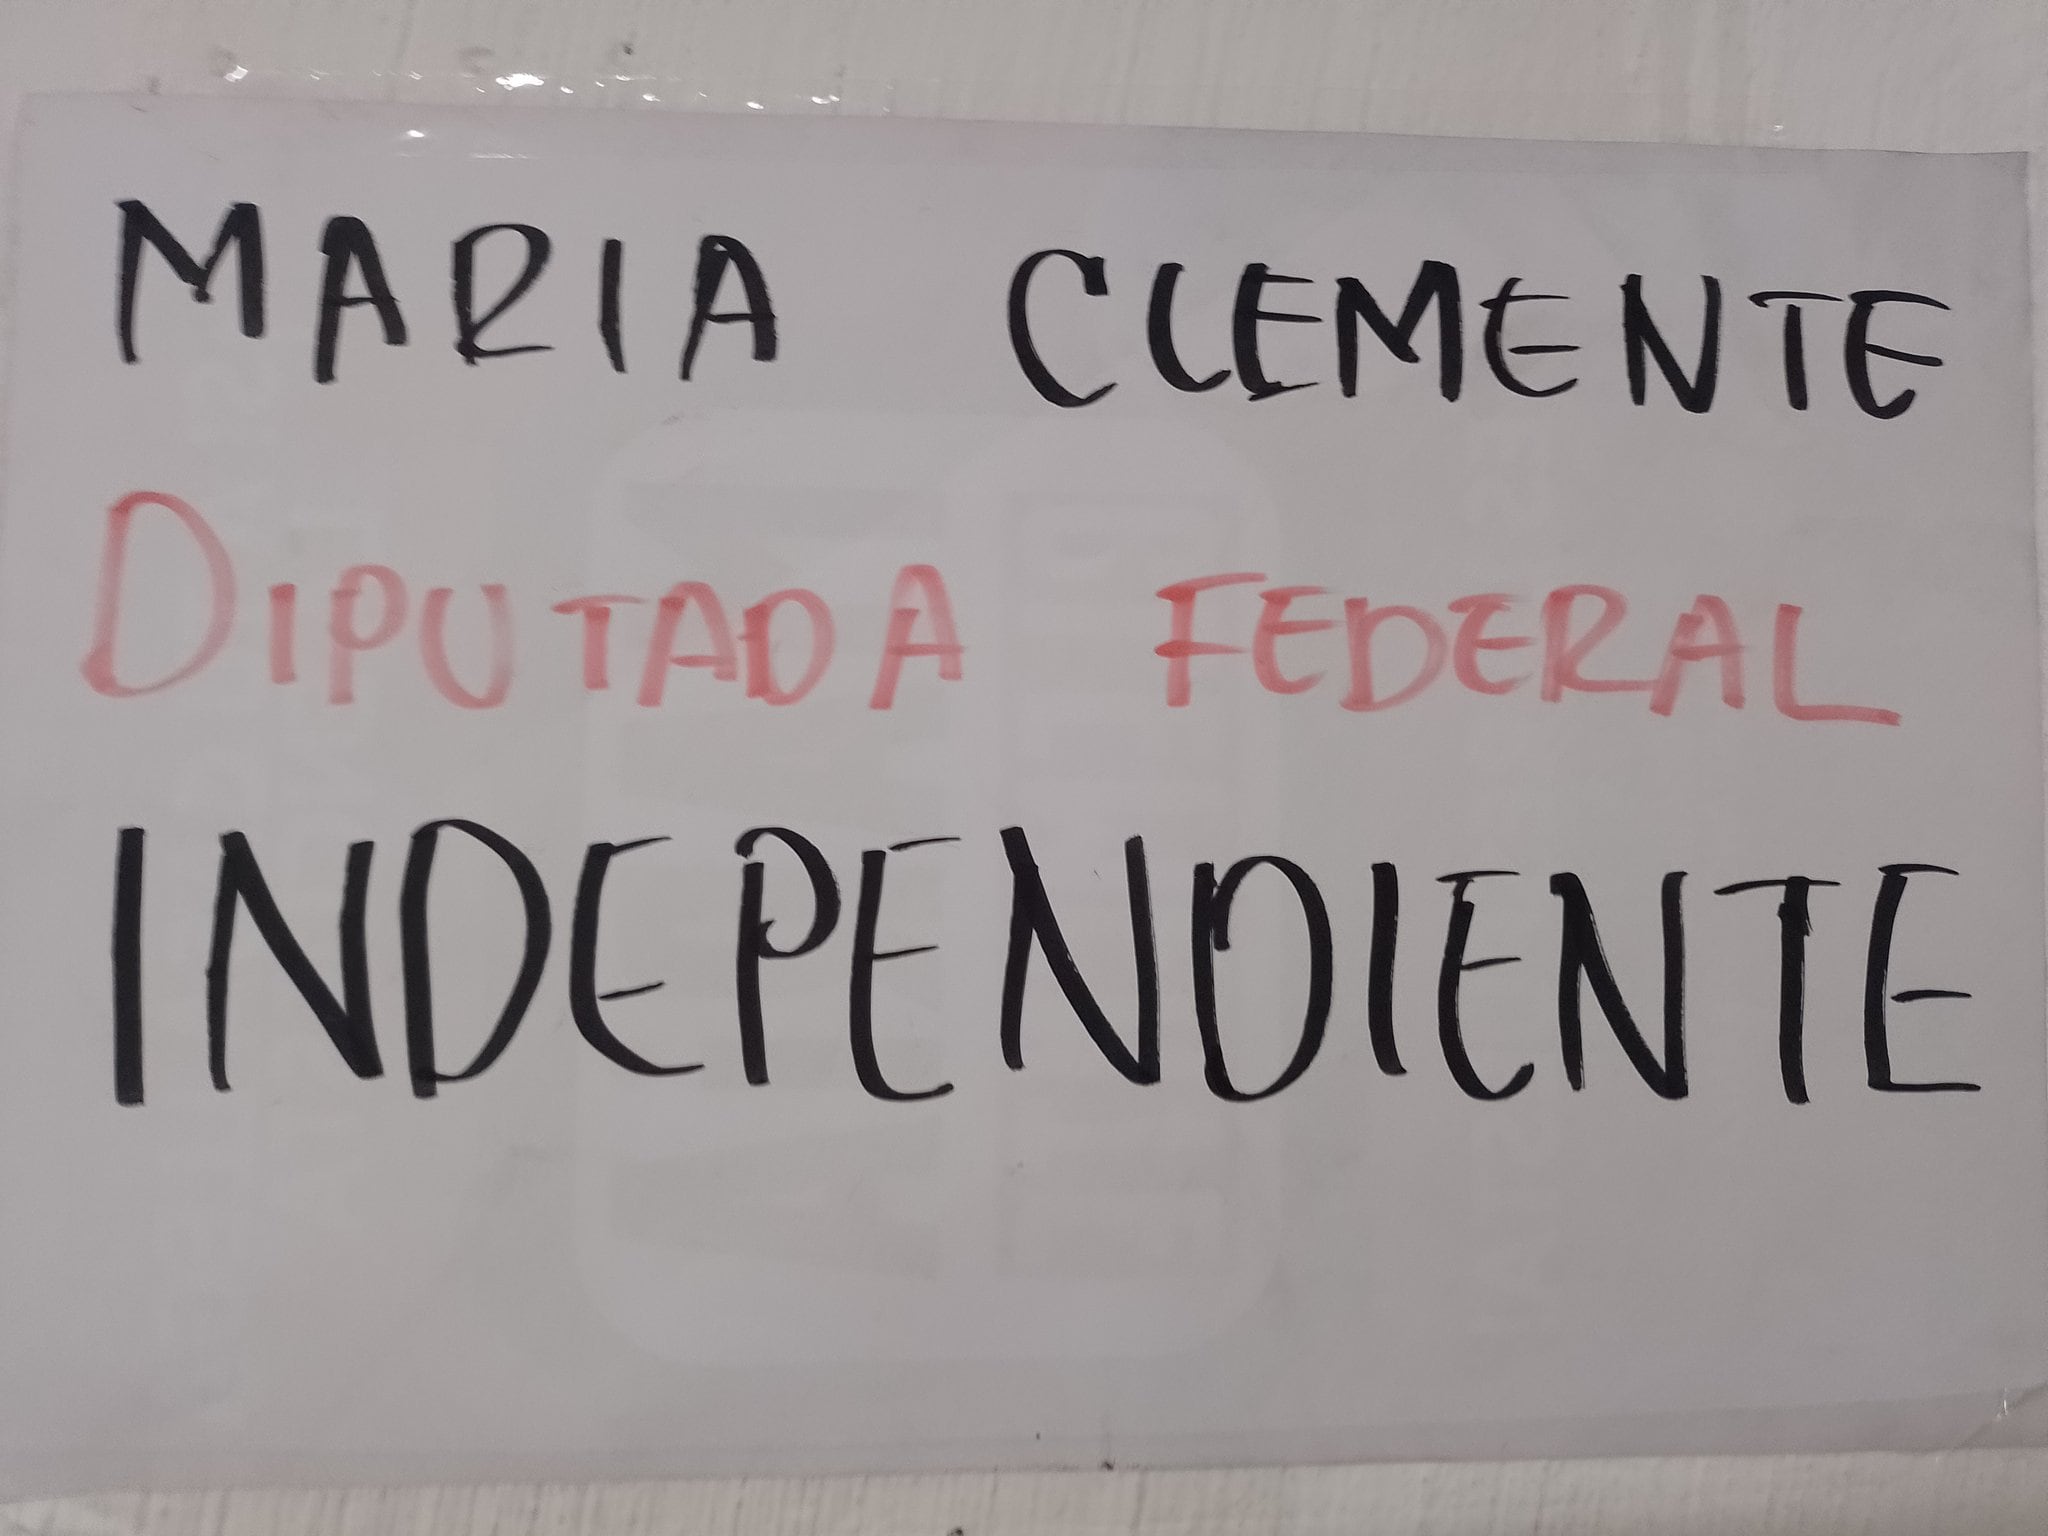 MARIA CLEMENTE
DIPUTADA FEDERAL
INDEPENDIENTE